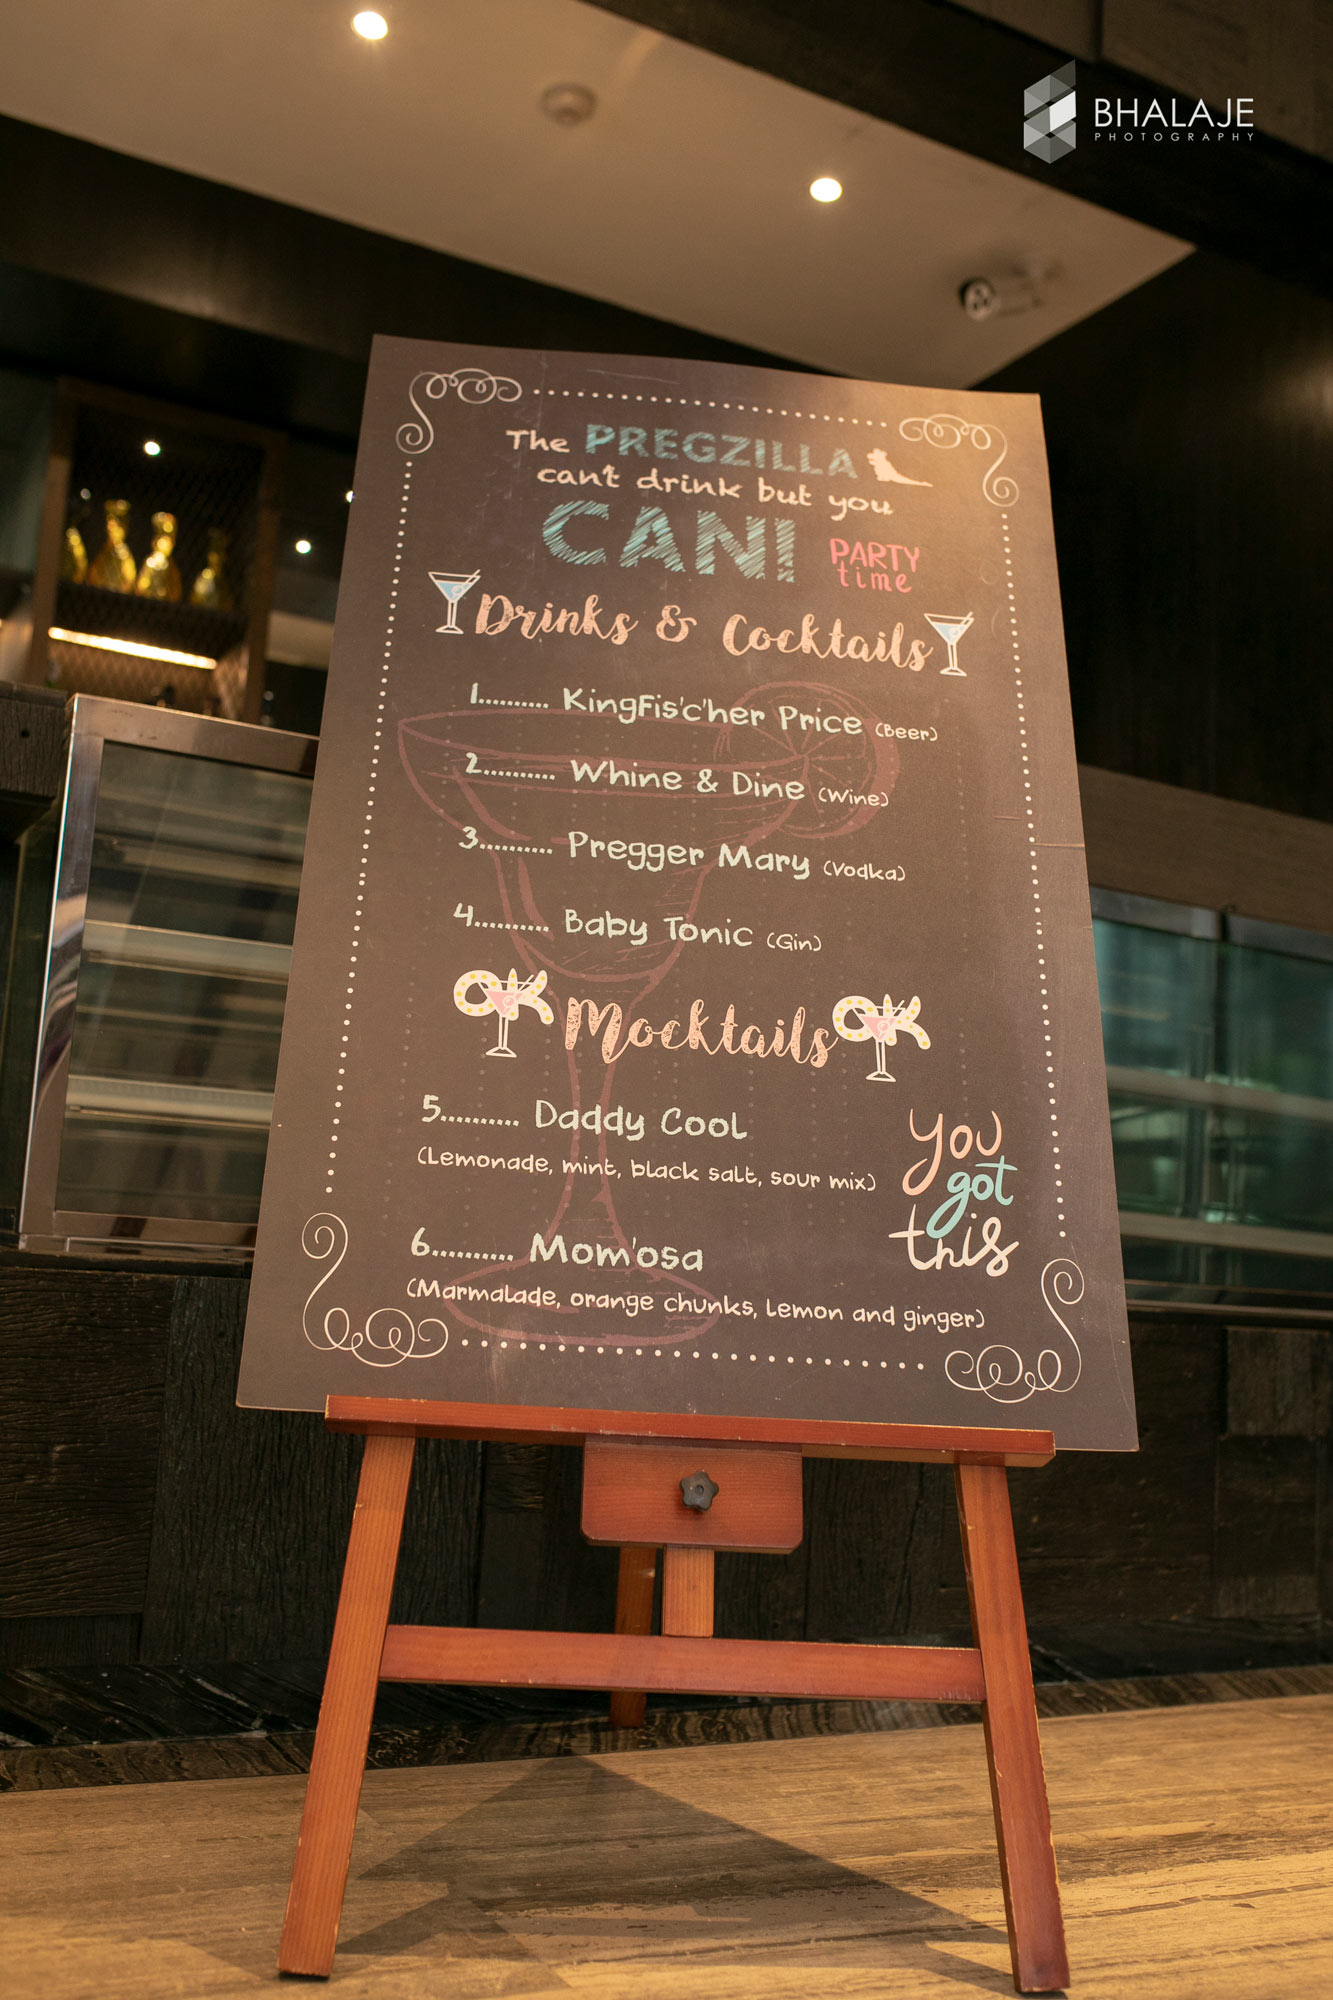 BHALAJE
PHOTOGRAPHY
The PREGZILLA
can't drink but you
CAN!
PARTY
time
Drinks & Cocktails
1.......... KingFis'c'her Price (Beer)
2.......... Whine & Dine (Wine)
3.......... Pregger Mary (Vodka)
4.......... Baby Tonic (Gin)
OK Mocktails OK
5.......... Daddy Cool
(Lemonade, mint, black salt, sour mix)
6.......... Mom'osa
(Marmalade, orange chunks, lemon and ginger)
you
got
this